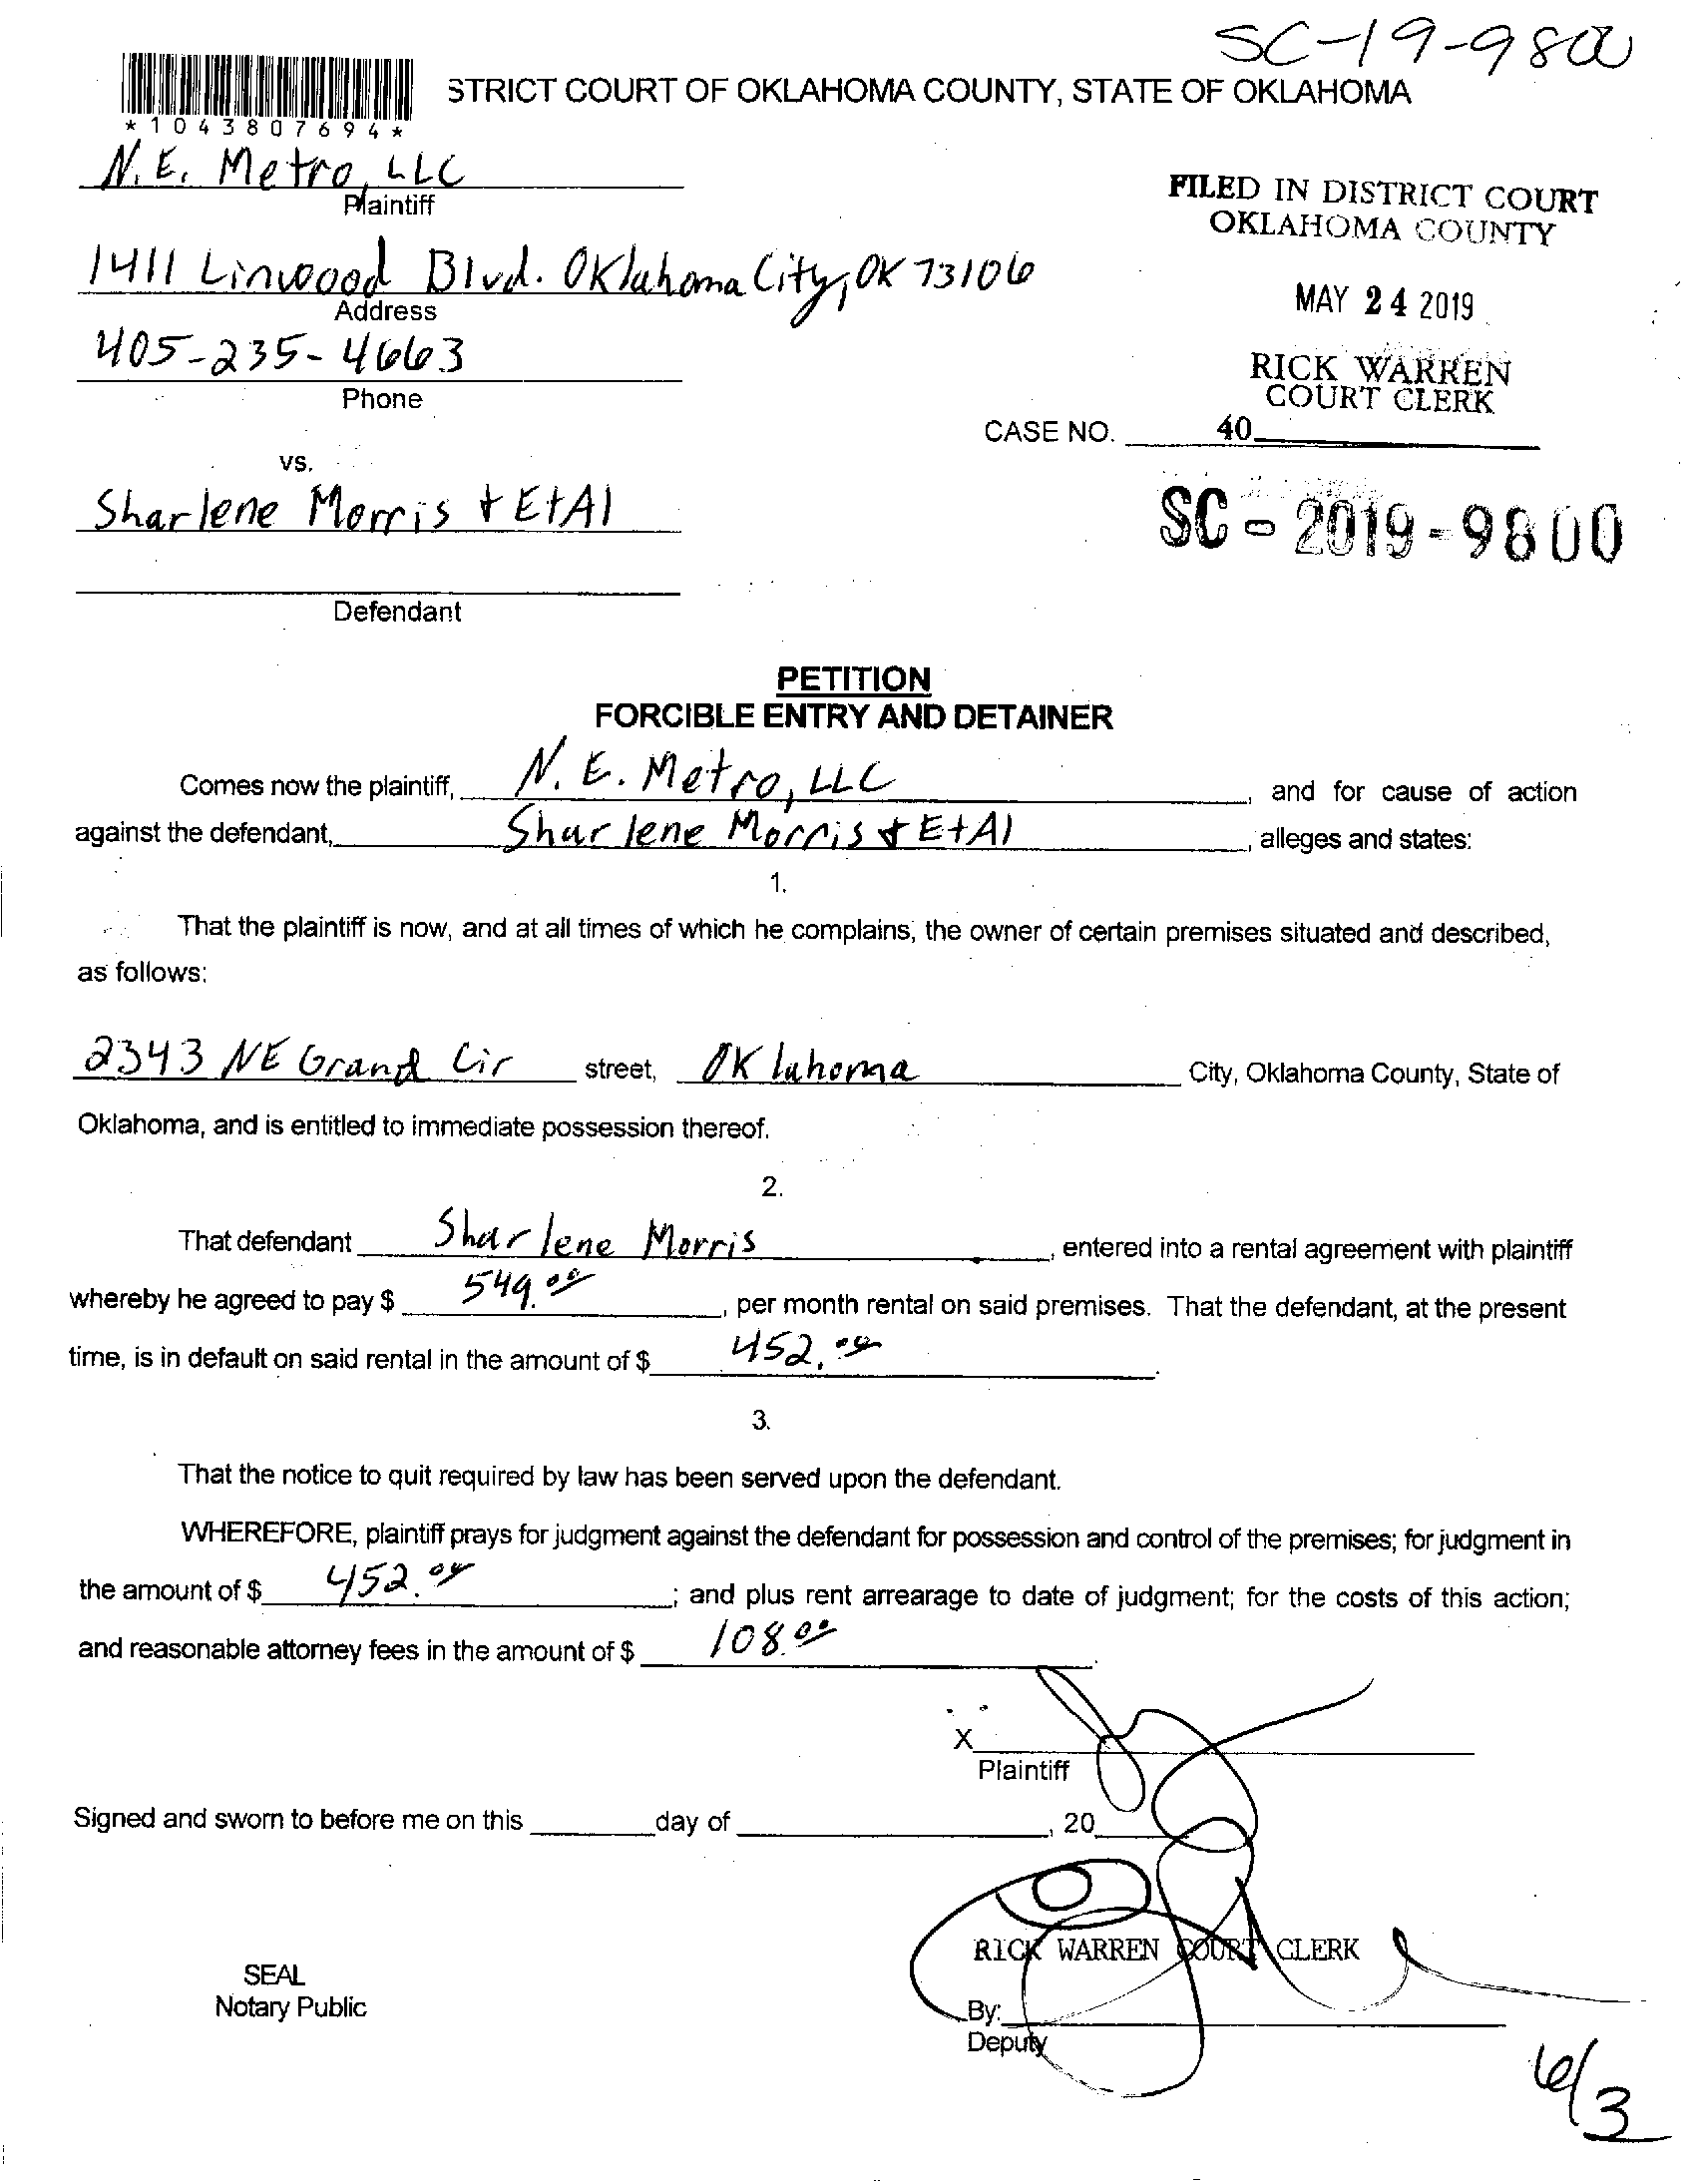 SC-19-9800
STRICT COURT OF OKLAHOMA COUNTY, STATE OF OKLAHOMA
*1043807694*
N.E. Metro, LLC
Plaintiff
FILED IN DISTRICT COURT
OKLAHOMA COUNTY
1411 Linwood Blvd. Oklahoma City, OK 73106
Address
MAY 24 2019
405-235-4663
Phone
RICK WARREN
COURT CLERK
CASE NO. 40
vs.
Sharlene Morris + EtAl
SC-2019-9800
Defendant
PETITION
FORCIBLE ENTRY AND DETAINER
Comes now the plaintiff, N. E. Metro, LLC, and for cause of action
against the defendant, Sharlene Morris + EtAl, alleges and states:
1.
That the plaintiff is now, and at all times of which he complains, the owner of certain premises situated and described,
as follows:
2343 NE Grand Cir street, Oklahoma City, Oklahoma County, State of
Oklahoma, and is entitled to immediate possession thereof.
2.
That defendant Sharlene Morris, entered into a rental agreement with plaintiff
whereby he agreed to pay $ 549.00, per month rental on said premises. That the defendant, at the present
time, is in default on said rental in the amount of $ 452.04.
3.
That the notice to quit required by law has been served upon the defendant.
WHEREFORE, plaintiff prays for judgment against the defendant for possession and control of the premises; for judgment in
the amount of $ 452.04; and plus rent arrearage to date of judgment; for the costs of this action;
and reasonable attorney fees in the amount of $ 108.00.
X
Plaintiff
Signed and sworn to before me on this day of , 20
RICK WARREN COURT CLERK
SEAL
Notary Public
By:
Deputy
6/3